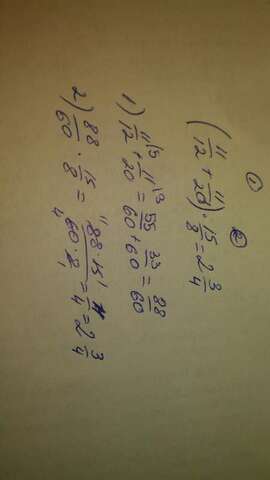 ① ②
(11/12 + 11/20) · 15/8 = 2 3/4
1) 11/12 ⁵ + 11/20 ³ = 55/60 + 33/60 = 88/60
2) 88/60 · 15/8 = 88 · 15/60 · 8 = 11/4 = 2 3/4